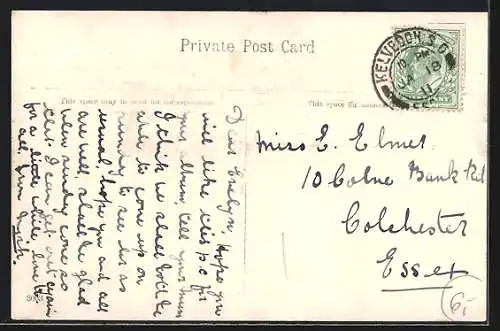 Private Post Card
KELVEDON S.O.
JA 18
11
This space may be used for correspondence
This space for
Dear Evelyn, Hope you
will like this p.c for
your album, tell your mum
I think we shall both be
able to come up on
sunday to see her as
usual, hope you and all
are well, shall be glad
when sunday comes so
that I can get out again
for a little while, love to
all, from
Miss E. Elmes
10 Colne Bank Rd
Colchester
Essex
6/-